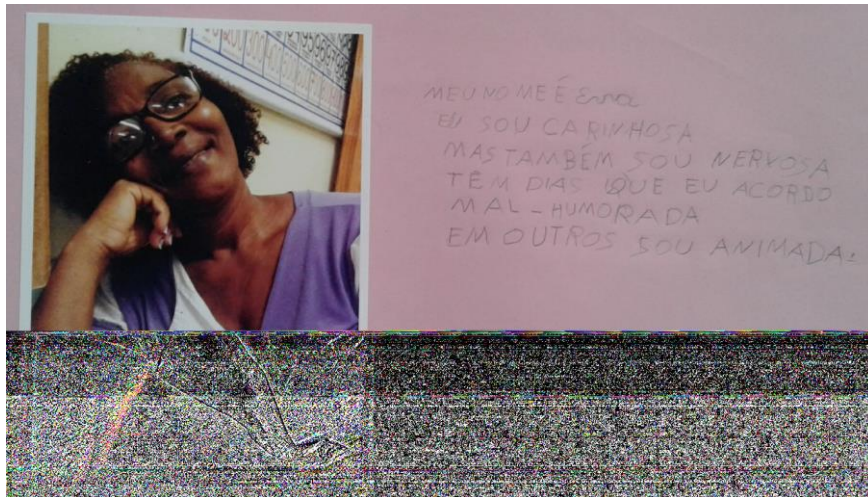 200 300 400
MEU NOME É
EU SOU CARINHOSA
MAS TAMBÉM SOU NERVOSA
TÊM DIAS QUE EU ACORDO
MAL-HUMORADA
EM OUTROS SOU ANIMADA.